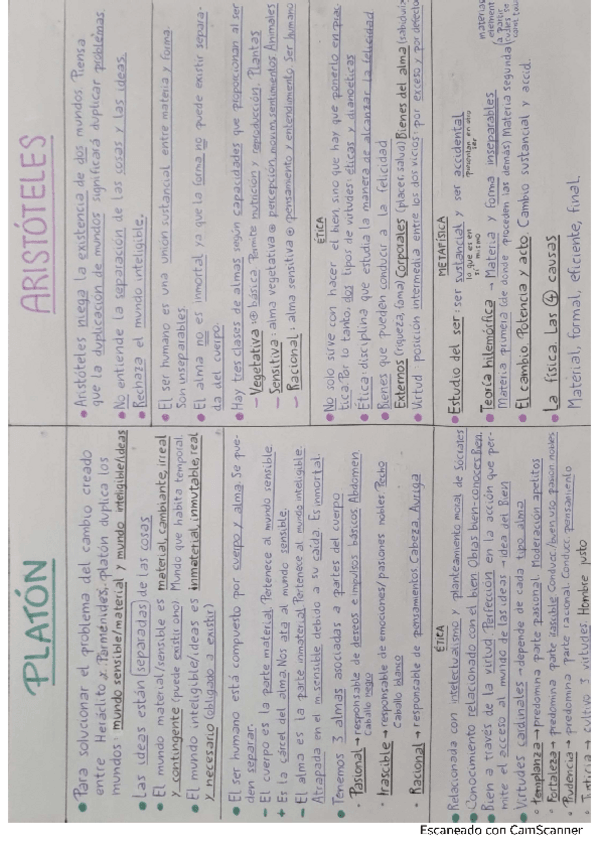 PLATÓN
• Para solucionar el problema del cambio creado
entre Heráclito y Parménides, platón duplica los
mundos: mundo sensible/material y mundo inteligible/ideas
• Las ideas están separadas de las cosas
• El mundo material/sensible es material, cambiante, irreal
y contingente (puede existir o no). Mundo que habita temporal.
• El mundo inteligible/ideas es inmaterial, inmutable, real
y necesario (obligado a existir)
• El ser humano está compuesto por cuerpo y alma. Se pue-
den separar.
- El cuerpo es la parte material. Pertenece al mundo sensible.
+ Es la cárcel del alma. Nos ata al mundo sensible.
- El alma es la parte inmaterial. Pertenece al mundo inteligible.
Atrapada en el m. sensible debido a su caída. Es inmortal.
• Tenemos 3 almas asociadas a partes del cuerpo
· Pasional → responsable de deseos e impulsos básicos. Abdomen
Caballo negro
· Irascible → responsable de emociones/pasiones nobles. Pecho
Caballo blanco
· Racional → responsable de pensamientos. Cabeza. Auriga
ÉTICA
• Relacionada con intelectualismo y planteamiento moral de Sócrates
• Conocimiento relacionado con el bien. Obras bien-conoces Bien.
• Bien a través de la virtud. Perfección en la acción que per-
mite el acceso al mundo de las ideas → idea del Bien
• Virtudes cardinales → depende de cada tipo alma
· Templanza → predomina parte pasional. Moderación apetitos
· Fortaleza → predomina parte irascible. Conduc./buen uso pasion nobles
· Prudencia → predomina parte racional. Conducc. pensamiento
· Justicia → cultivo 3 virtudes. Hombre justo
ARISTÓTELES
• Aristóteles niega la existencia de dos mundos. Piensa
que la duplicación de mundos significará duplicar problemas.
• No entiende la separación de las cosas y las ideas.
• Rechaza el mundo inteligible.
• El ser humano es una unión sustancial entre materia y forma.
Son inseparables.
• El alma no es inmortal ya que la forma no puede existir separa-
da del cuerpo.
• Hay tres clases de almas según capacidades que proporcionan al ser
- Vegetativa: básica. Permite nutrición y reproducción. Plantas
- Sensitiva: alma vegetativa ⊕ percepción, movim, sentimientos. Animales
- Racional: alma sensitiva ⊕ pensamiento y entendimiento. Ser humano
ÉTICA
• No solo sirve con hacer el bien sino que hay que ponerlo en prác
tica. Por lo tanto, dos tipos de virtudes: éticas y dianoéticas
• Ética: disciplina que estudia la manera de alcanzar la felicidad
• Bienes que pueden conducir a la felicidad
Externos (riqueza, fama) Corporales (placer, salud) Bienes del alma (sabidurí
• Virtud: posición intermedia entre los dos vicios: por exceso y por defecto
METAFÍSICA
• Estudio del ser: ser sustancial y ser accidental
lo que es en si mismo
• Teoría hilemórfica → Materia y forma inseparables
Materia primera (de donde proceden las demás) Materia segunda
• El cambio Potencia y acto Cambio sustancial y accid.
• La física. Las ④ causas
Material, formal, eficiente, final.
Escaneado con CamScanner